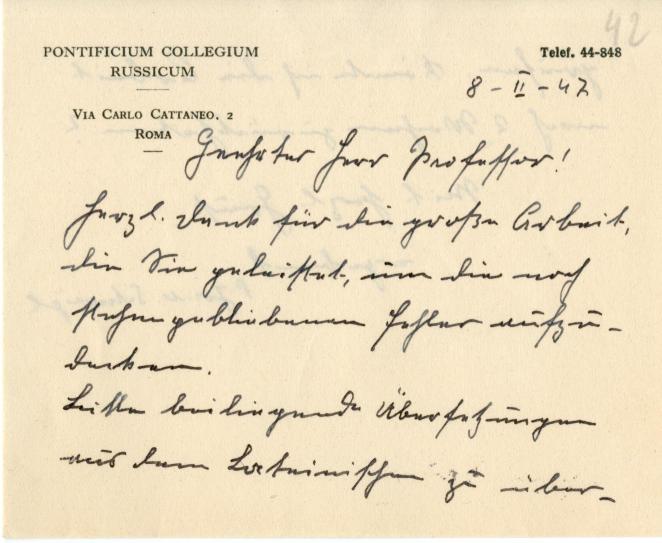 42
PONTIFICIUM COLLEGIUM
RUSSICUM
Telef. 44-848
8-II-47
VIA CARLO CATTANEO, 2
ROMA
Geehrter Herr Professor!
Herzl. Dank für die große Arbeit,
die Sie geleistet, um die noch
stehengebliebenen Fehler aufzu-
decken.
Bitte beiliegende Übersetzungen
aus dem Lateinischen zu über-